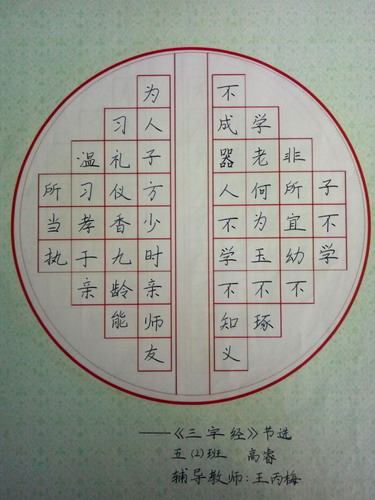 子不学
非所宜幼不
学老何为玉不琢
不成器人不学不知义
为人子方少时亲师友
习礼仪香九龄能
温习孝于亲
所当执
——《三字经》节选
五(2)班 高睿
辅导教师:王丙梅